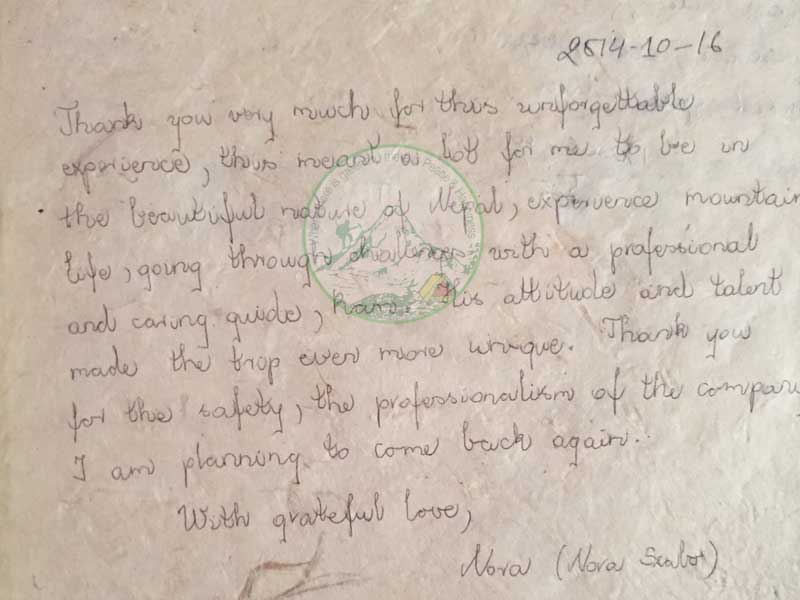 2014-10-16
Thank you very much for this unforgettable
experience, this meant a lot for me to be in
the beautiful nature of Nepal, experience mountain
life, going through challenges with a professional
and caring guide, Ram. His attitude and talent
made the trip even more unique. Thank you
for the safety, the professionalism of the company
I am planning to come back again.
With grateful love,
Nora (Nora Szabo)